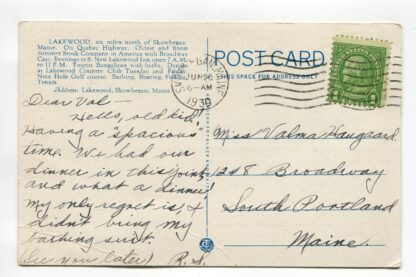 LAKEWOOD, six miles north of Skowhegan,
Maine. On Quebec Highway. Oldest and finest
Summer Stock Company in America with Broadway
Cast. Evenings at 8. New Lakewood Inn open 7 A.M.
to 11 P.M. Tourist Bungalows with baths. Dances
at Lakewood Country Club Tuesday and Friday.
Nine Hole Golf course. Bathing, Boating, Fishing,
Tennis.
Address: Lakewood, Skowhegan, Maine.
Dear Val—
Hello, old kid!
Having a "spacious"
time. We had our
dinner in this joint,
and what a dinner!
My only regret is, I
didn't bring my
bathing suit.
(See you later) R.S.
POST CARD
THIS SPACE FOR ADDRESS ONLY
JUN 26
6-AM
1930
Miss Valma Haugaard
1248 Broadway
South Portland
Maine.